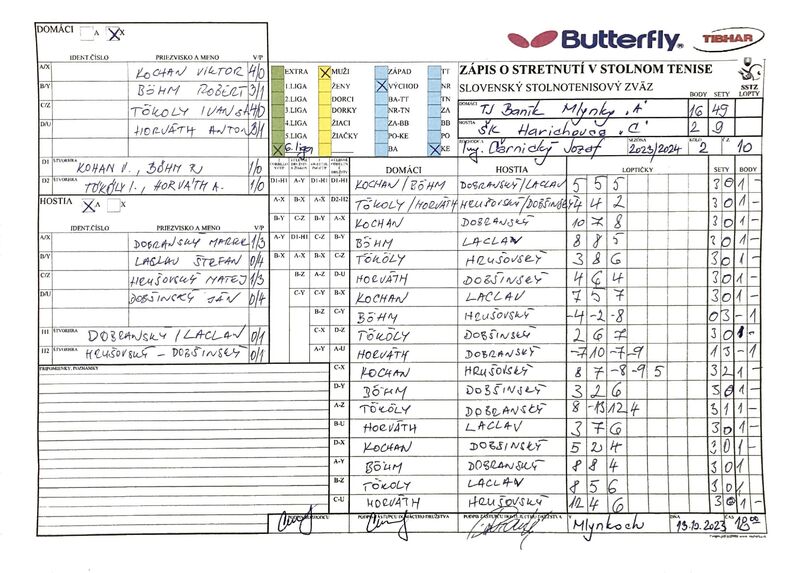 DOMÁCI A X
Butterfly
TIBHAR
IDENT.ČÍSLO PRIEZVISKO A MENO V/P
A/X KOCHAN VIKTOR 4/0
B/Y BÖHM RÓBERT 3/1
C/Z TÖKÖLY IVAN 4/0
D/U HORVÁTH ANTON 3/1
EXTRA MUŽI ZÁPAD TT
1.LIGA ŽENY VÝCHOD NR
2.LIGA DORCI BA-TT TN
3.LIGA DORKY NR-TN ZA
4.LIGA ŽIACI ZA-BB BB
5.LIGA ŽIAČKY PO-KE PO
6. liga BA KE
ZÁPIS O STRETNUTÍ V STOLNOM TENISE
SLOVENSKÝ STOLNOTENISOVÝ ZVÄZ
SSTZ
BODY SETY LOPTY
DOMÁCI TJ Baník Mlynky "A" 16 49
HOSTIA ŠK Harichovce "C" 2 9
Ing. Čarnický Jozef SEZÓNA 2023/2024 KOLO 2 Č.Z. 10
D1 ŠTVORHRA KOHAN V., BÖHM R. 1/0
D2 TÖKÖLY I., HORVÁTH A. 1/0
HOSTIA A X
IDENT.ČÍSLO PRIEZVISKO A MENO V/P
A/X DOBRANSKÝ MAREK 1/3
B/Y LACLAV ŠTEFAN 0/4
C/Z HRUŠOVSKÝ MATEJ 1/3
D/U DOBŠINCKÝ JÁN 0/4
H1 ŠTVORHRA DOBRANSKÝ / LACLAV 0/1
H2 ŠTVORHRA HRUŠOVSKÝ - DOBŠINSKÝ 0/1
PRIPOMIENKY, POZNÁMKY
DOMÁCI HOSTIA LOPTIČKY SETY BODY
D1-H1 A-Y D1-H1 D1-H1 KOCHAN/BÖHM DOBRANSKÝ/LACLAV 5 5 5 3 0 1 -
A-X B-X A-X D2-H2 TÖKÖLY/HORVÁTH HRUŠOVSKÝ/DOBŠINSKÝ 4 4 2 3 0 1 -
B-Y C-Z B-Y A-X KOCHAN DOBRANSKÝ 10 7 8 3 0 1 -
A-Y D1-H1 C-Z B-Y BÖHM LACLAV 8 8 5 3 0 1 -
B-X A-X A-X C-Z TÖKÖLY HRUŠOVSKÝ 3 8 6 3 0 1 -
B-Z A-Z D-U HORVÁTH DOBŠINSKÝ 4 6 4 3 0 1 -
C-Y B-X KOCHAN LACLAV 7 5 7 3 0 1 -
B-Z C-Y BÖHM HRUŠOVSKÝ -4 -2 -8 0 3 - 1
C-X D-Z TÖKÖLY DOBŠINSKÝ 2 6 7 3 0 1 -
A-Y A-U HORVÁTH DOBRANSKÝ -7 10 -7 -9 1 3 - 1
C-X KOCHAN HRUŠOVSKÝ 8 7 -8 -9 5 3 2 1
D-Y BÖHM DOBŠINSKÝ 3 2 6 3 0 1 -
A-Z TÖKÖLY DOBRANSKÝ 8 -13 12 4 3 1 1 -
B-U HORVÁTH LACLAV 3 7 6 3 0 1 -
D-X KOCHAN DOBŠINSKÝ 5 2 4 3 0 1 -
A-Y BÖHM DOBRANSKÝ 8 8 4 3 0 1 -
B-Z TÖKÖLY LACLAV 8 5 6 3 0 1
C-U HORVÁTH HRUŠOVSKÝ 12 4 6 3 0 1 -
V Mlynkoch DŇA 13.10.2023 ČAS 18:00